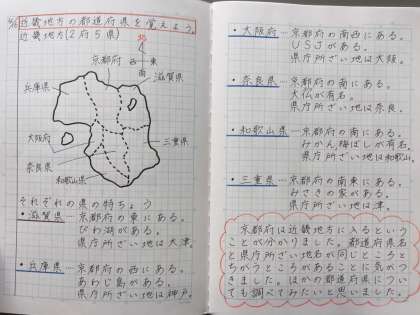 近畿地方の都道府県を覚えよう。
近畿地方(2府5県)
北
西 東
南
京都府
滋賀県
兵庫県
大阪府
三重県
奈良県
和歌山県
それぞれの県の特ちょう
・滋賀県―京都府の東にある。
びわ湖がある。
県庁所ざい地は大津。
・兵庫県―京都府の西にある。
あわじ島がある。
県庁所ざい地は神戸。
・大阪府―京都府の南西にある。
USJがある。
県庁所ざい地は大阪。
・奈良県―京都府の南にある。
大仏が有名。
県庁所ざい地は奈良。
・和歌山県―京都府の南にある。
みかん,梅ぼしが有名。
県庁所ざい地は和歌山。
・三重県―京都府の南東にある。
みさきの家がある。
県庁所ざい地は津。
京都府は近畿地方に入るという
ことが分かりました。都道府県名
と県庁所ざい地名が同じところと
ちがうところがあることに気がつ
きました。ほかの都道府県につい
ても調べてみたいと思いました。